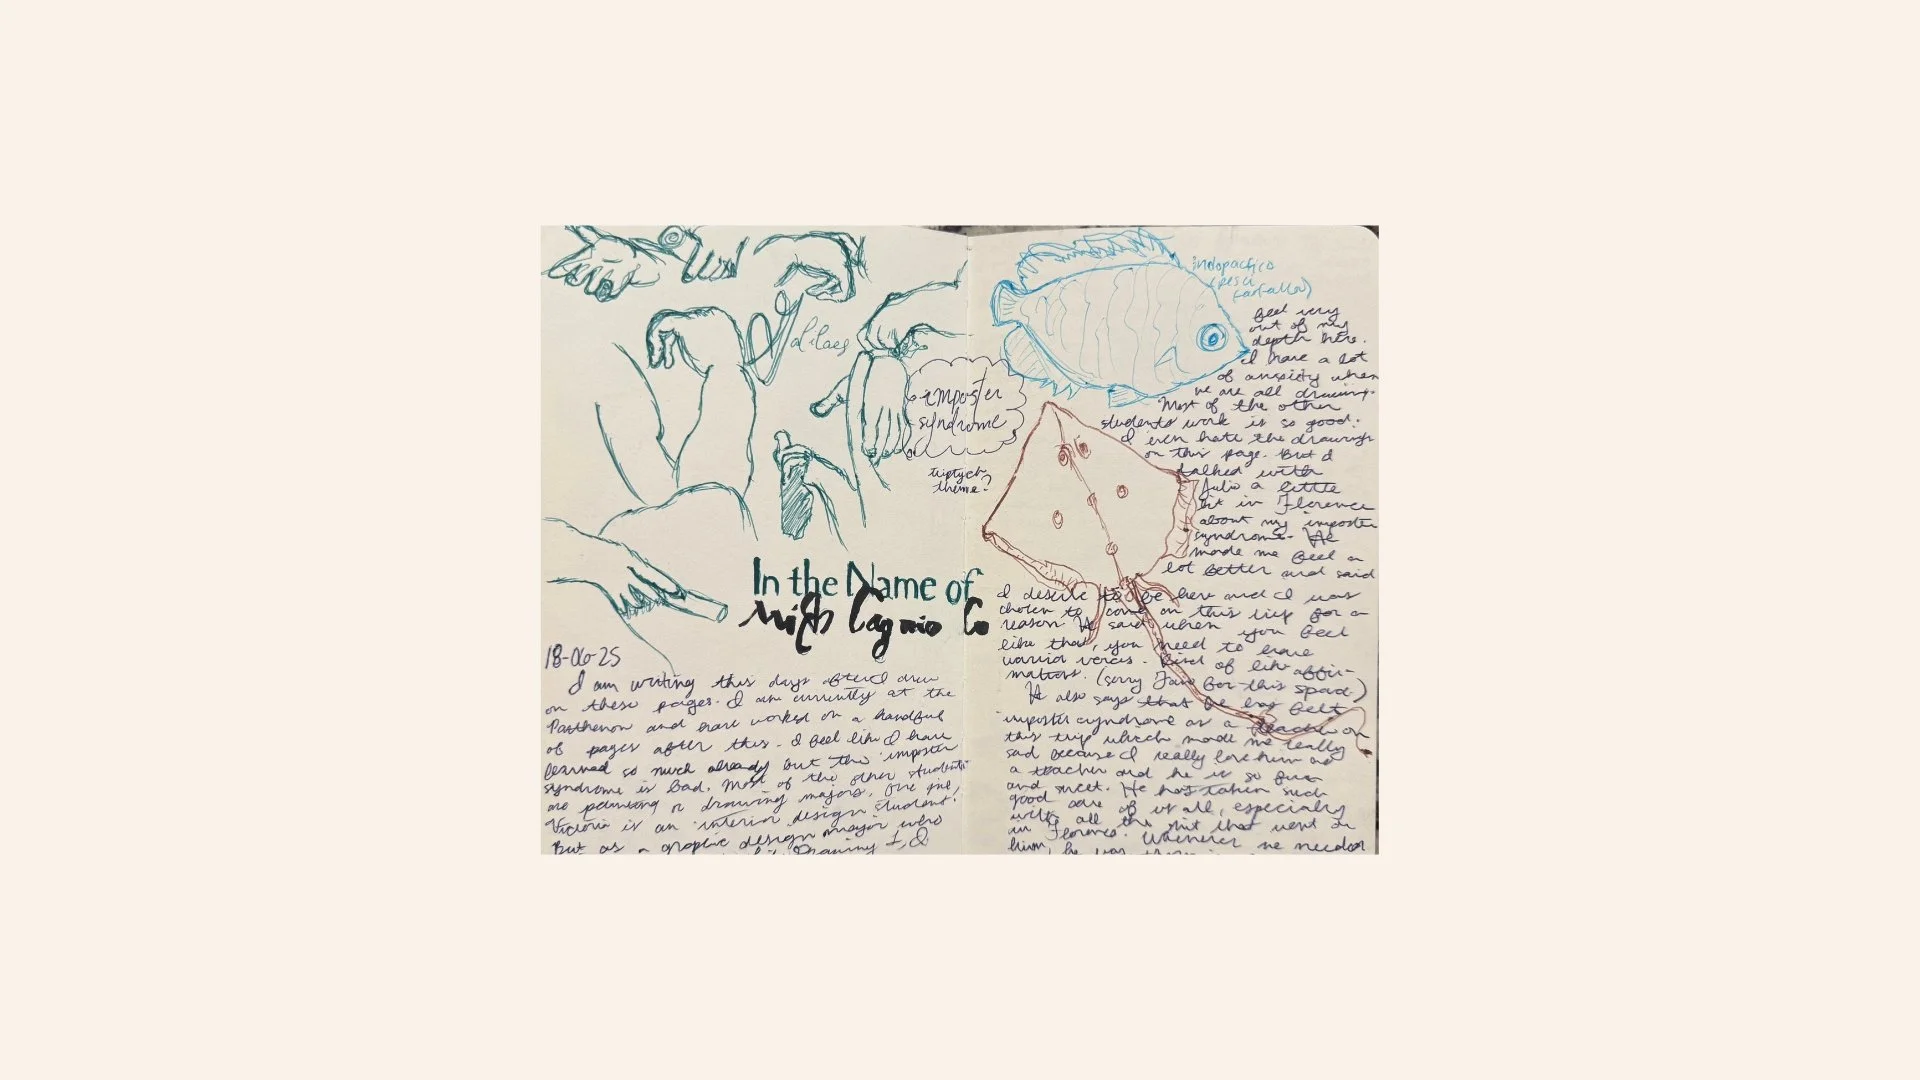 imposter
syndrome
triptych
theme?
In the Name of
18-06-25
I am writing this days after I drew
on these pages. I am currently at the
Parthenon and have worked on a handful
of pages after this. I feel like I have
learned so much already but the imposter
syndrome is bad. Most of the other students
are painting or drawing majors, one girl,
Victoria is an interior design student.
But as a graphic design major who
Drawing I, I
indopacifico
(pesci
farfalla)
feel very
out of my
depth here.
I have a lot
of anxiety when
we are all drawing.
Most of the other
students work is so good.
I even hate the drawings
on this page. But I
talked with
Julio a little
bit in Florence
about my imposter
syndrome. He
made me feel a
lot better and said
I deserve to be here and I was
chosen to come on this trip for a
reason. He said when you feel
like that, you need to have
warrior verses. Kind of like affir-
mations. (sorry for this spread)
He also says that he has felt
imposter syndrome as a teacher on
this trip which made me really
sad because I really love him as
a teacher and he is so fun
and sweet. He has taken such
good care of us all, especially
with all the shit that went on
in Florence. Whenever we needed
him, he was